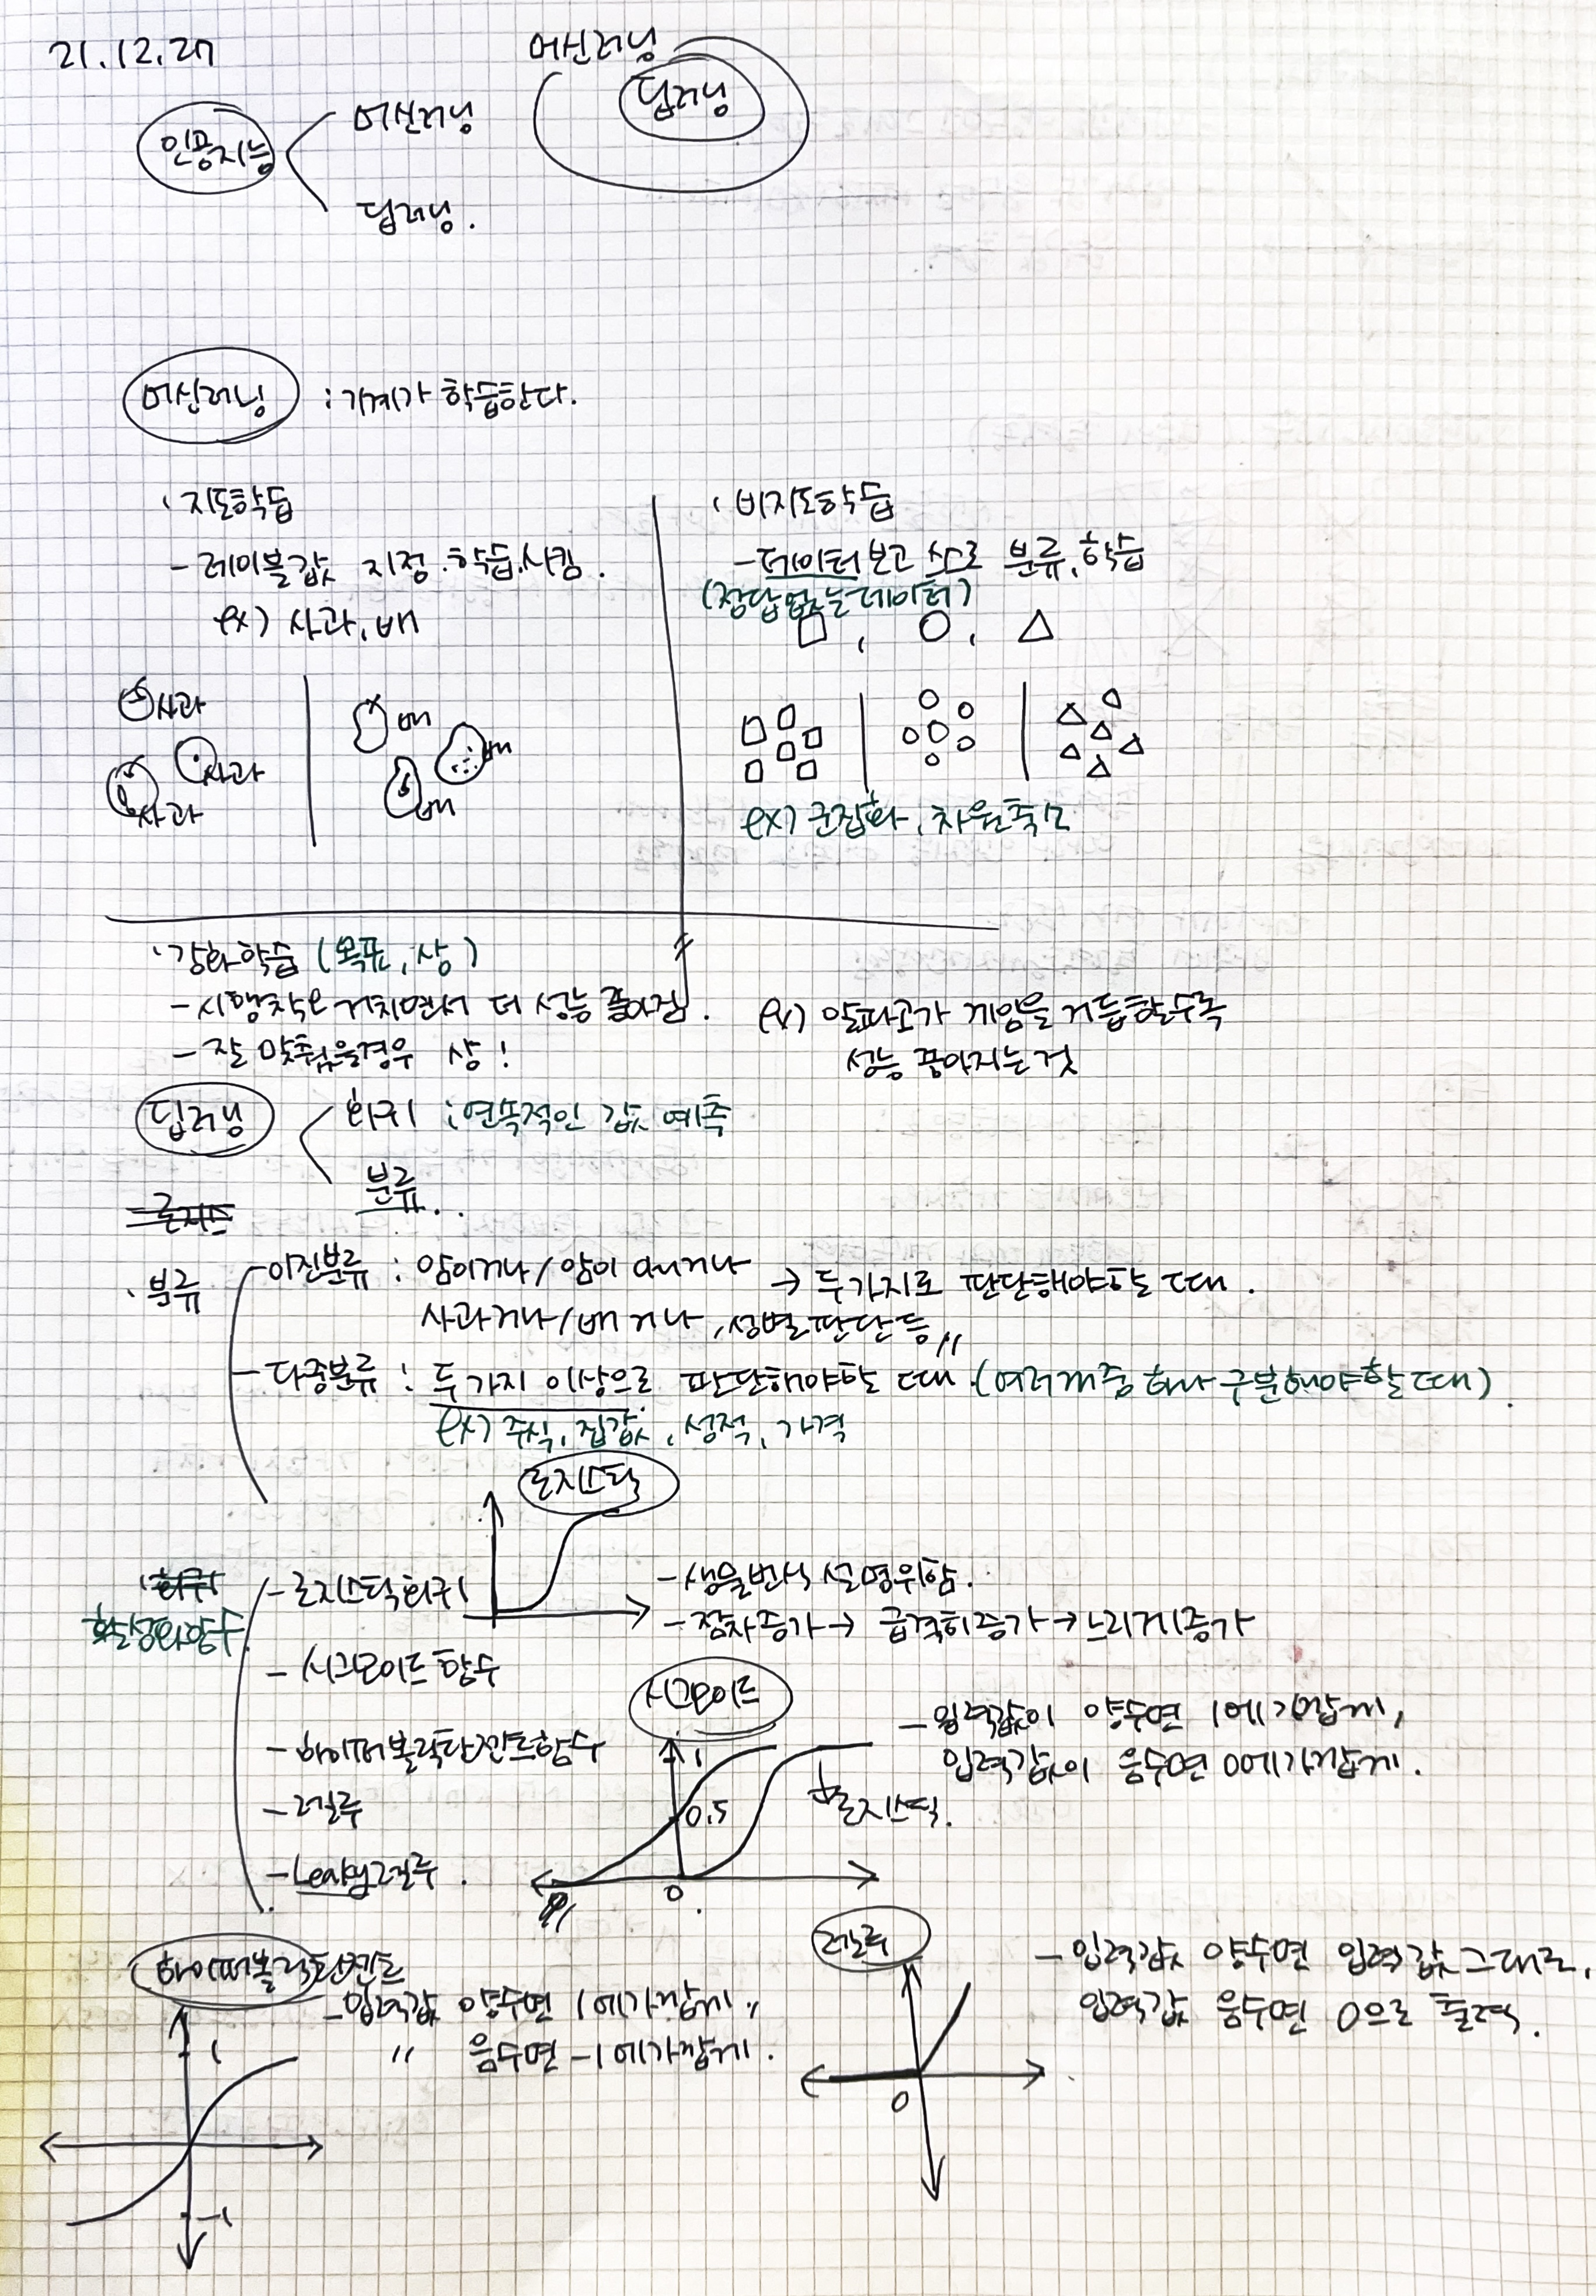 21.12.27
머신러닝
딥러닝
인공지능
머신러닝
딥러닝.
머신러닝 : 기계가 학습한다.
· 지도학습
- 레이블값 지정.학습.시킴.
ex) 사과, 배
사과
사과
사과
배
배
배
· 비지도학습
- 데이터보고 스스로 분류,학습
(정답없는데이터)
□, ○, △
ex) 군집화, 차원축소
· 강화학습 (목표, 상)
- 시행착오 거치면서 더 성능 좋아짐.
- 잘 맞췄을경우 상!
ex) 알파고가 게임을 거듭할수록
성능 좋아지는것
딥러닝
회귀 : 연속적인 값 예측
분류..
로지스
· 분류
- 이진분류 : 암이거나/암이 아니거나 → 두가지로 판단해야할 때.
사과거나/배거나, 성별판단등 〃
- 다중분류 : 두가지 이상으로 판단해야할 때 (여러개중 하나 구분해야할때).
ex) 주식, 집값, 성적, 가격
로지스틱
· 회귀
활성화함수
- 로지스틱회귀
- 생물번식 설명위함.
- 점차증가 → 급격히증가 → 느리게증가
- 시그모이드 함수
- 하이퍼볼릭탄젠트함수
- 렐루
- Leaky렐루.
시그모이드
1
0.5
0
로지스틱.
- 입력값이 양수면 1에가깝게,
입력값이 음수면 0에가깝게.
하이퍼볼릭탄젠트
- 입력값 양수면 1에가깝게 〃
〃 음수면 -1에가깝게.
1
-1
렐루
0
- 입력값 양수면 입력값그대로,
입력값 음수면 0으로 출력.